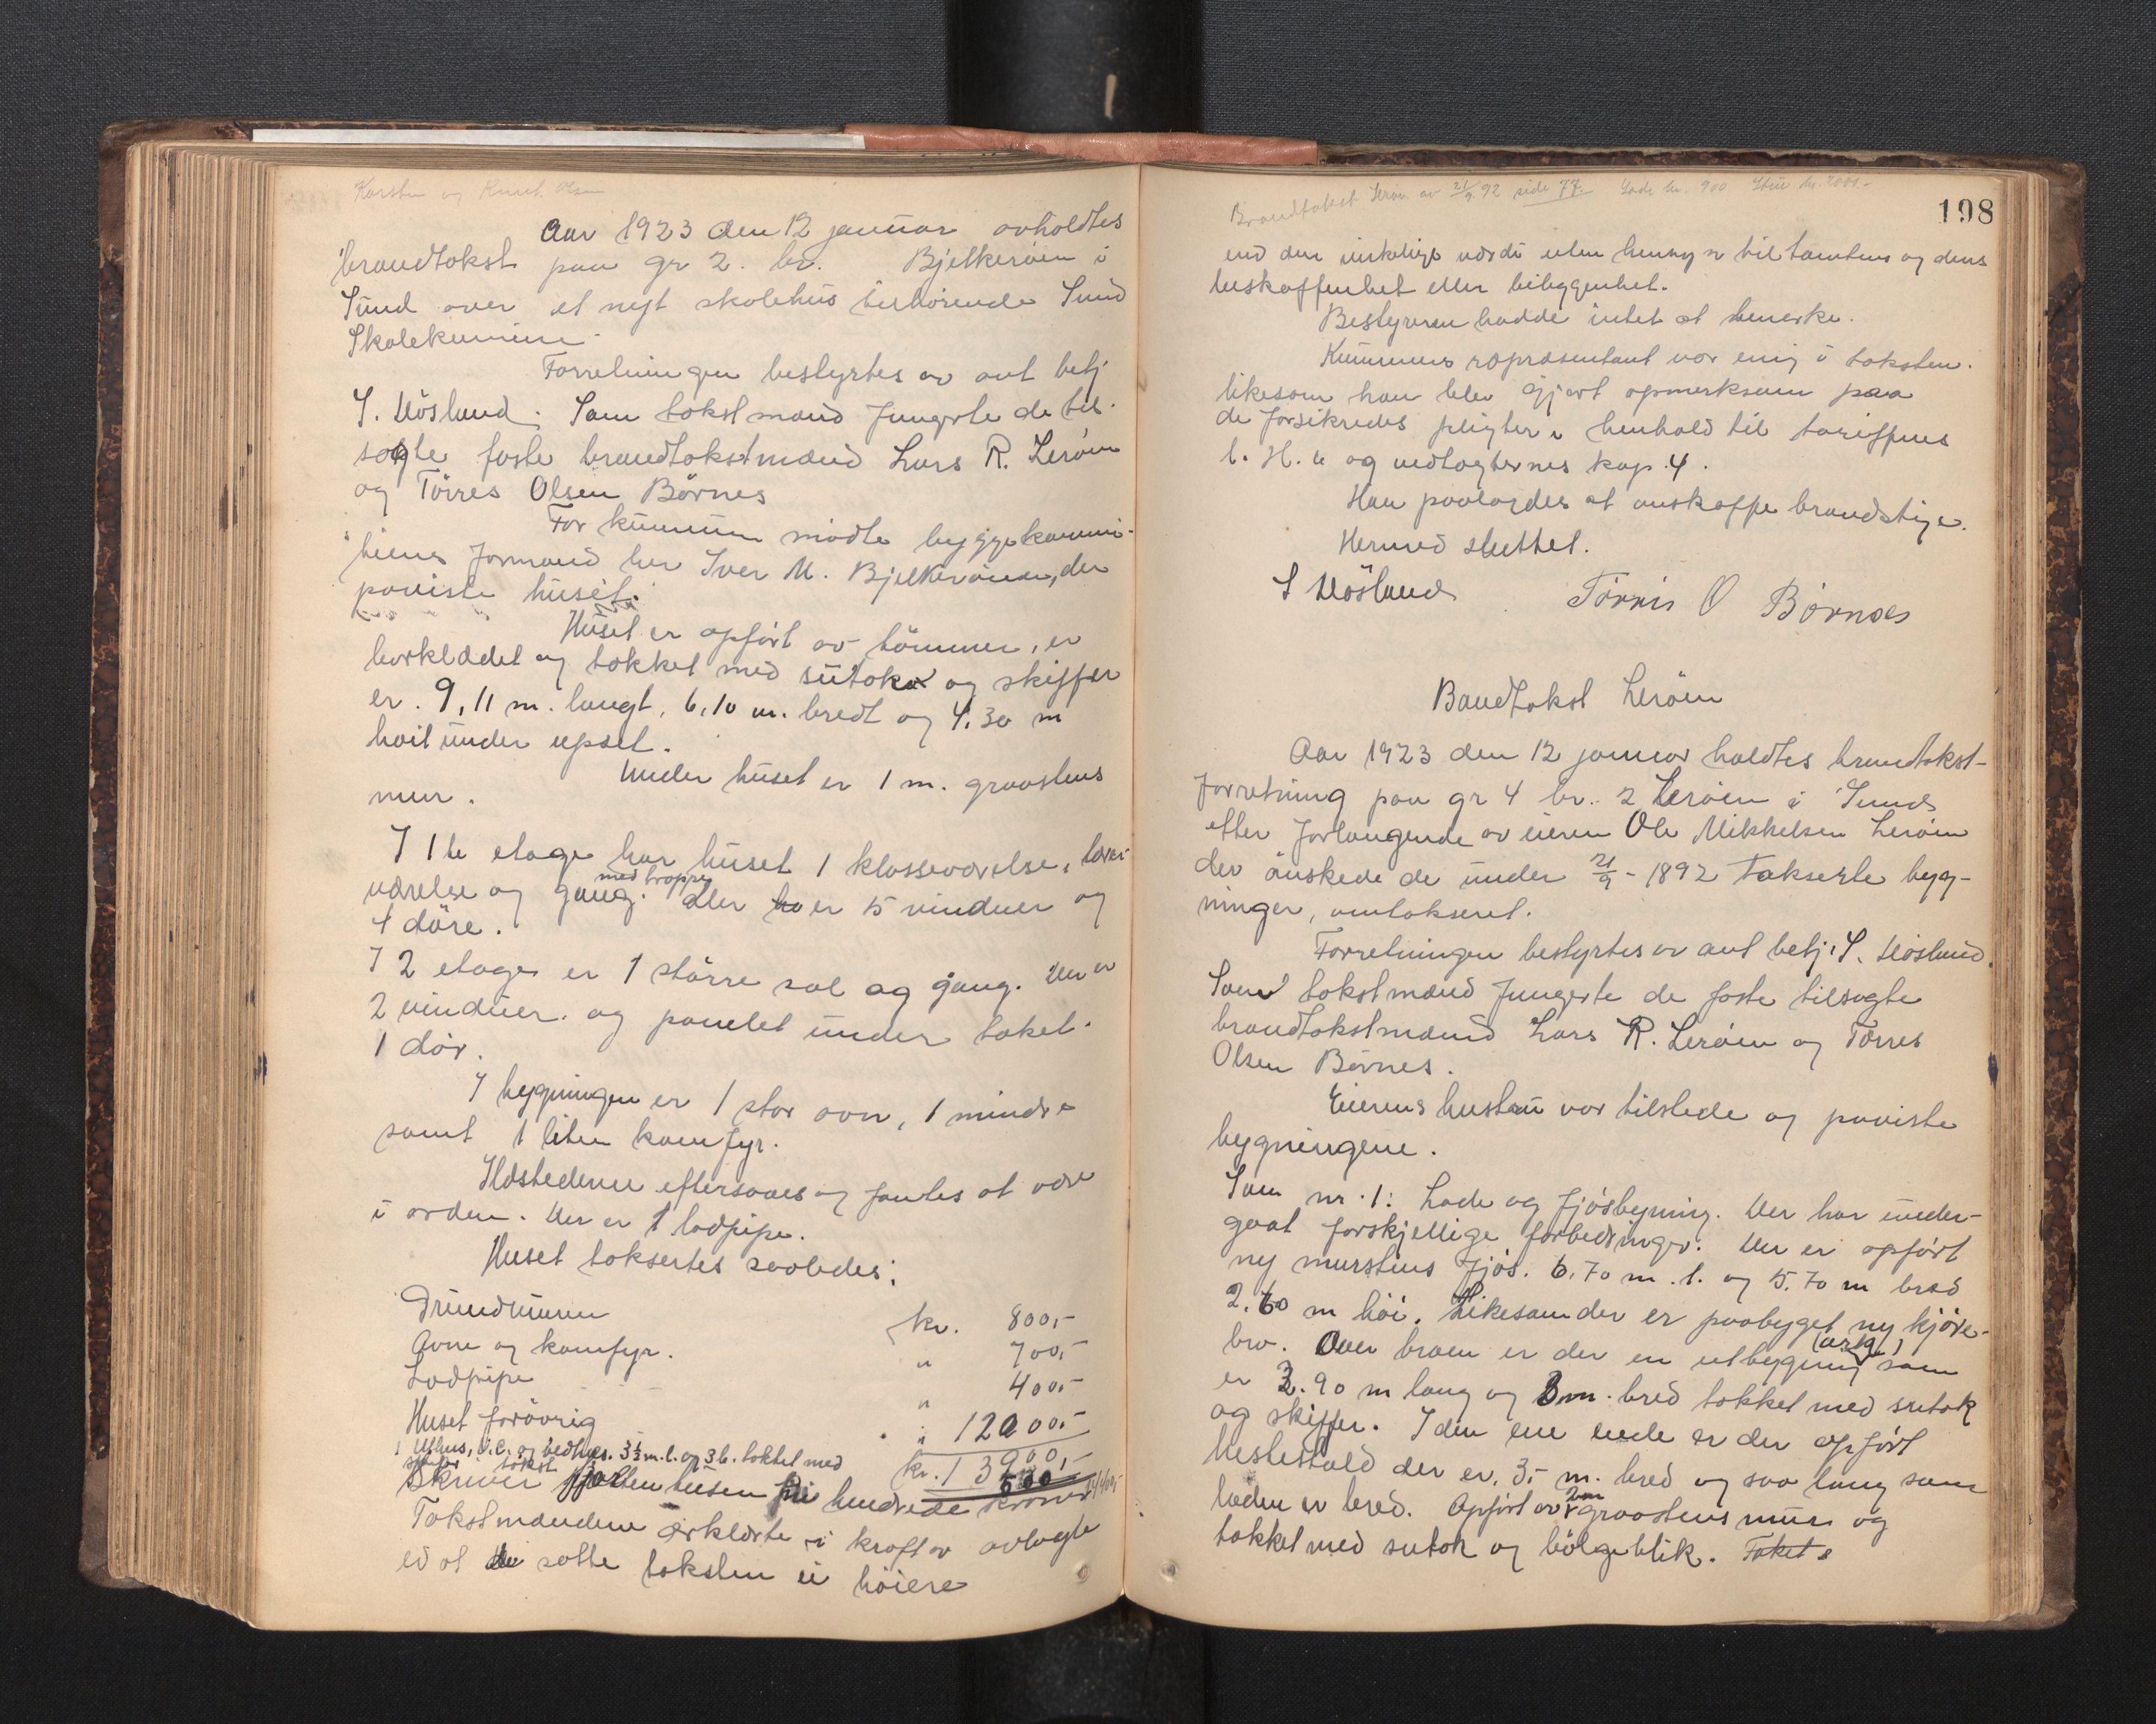 Karsten og Knut Olsen
Aar 1923 den 12 januar avholdtes
brandtakst paa gr 2. br. Bjelkerøien i
Sund over et nyt skolehus tilhørende Sund
Skolekumune
Forretningen bestyrtes av avt betj.
S. Usland. Som takstmænd fungerte de til-
sagte faste brandtakstmænd Lars R. Lerøien
og Törres Olsen Börnes
For kummun mödte byggekommi-
tiens formand hr Iver M. Bjelkerøien, der
paaviste huset.
Huset er opfört av tömmer, er
borklædet og tækket med sutak og skiffer
er. 9,11 m. langt, 6,10 m. bredt og 4,30 m
höit under upset.
Under huset er 1 m. graastens
mur.
I 1te etage har huset 1 klasseværelse, lærer
værelse og gang. med trappe der er 5 vinduer og
4 döre.
I 2 etage er 1 större sal og gang. Der er
2 vinduer. og panelet under taket.
1 dör.
I bygningen er 1 stor ovn, 1 mindre
samt 1 liten komfyr.
Ildstederne eftersaaes og fantes at være
i orden. Der er 1 lodpipe.
Huset taksertes saaledes:
Grundmuren kr. 800,-
Ovne og komfyr. " 700,-
Lodpipe " 400,-
Huset forövrig " 12000,-
1 Uthus, v.c. og vedhus. 3½ m. l. og 3 b. taktet med
skifer takst kr. 13900,-
500
Skriver fjorten tusen fire hundrede kroner 14400,-
Takstmændene erklærte i kraft av avlagte
ed at de satte taksten ei höiere
Brandtakst Lerøen av 21/9.92 side 77. Lade kr. 900 Stue kr. 2000.-
198
end den virkelige værdi uten hensyn til tomtens og dens
beskaffenhet eller beliggenhet.
Bestyreren hadde intet at bemerke.
Kummuns repræsentant var enig i taksten.
likesom han blev gjort opmerksom paa
de forsikredes pligter i henhold til tariffens
l. H. u og vedtægternes kap. 4.
Han paalagdes at anskaffe brandstige.
Hermed sluttet.
S Usland Törris O Börnæs
Bandtakst Leröen
Aar 1923 den 12 januar holdtes brandtakst-
forretning paa gr 4 br. 2 Leröen i Sund
efter forlangende av eieren Ole Mikkelsen Leröen
der önskede de under 21/9 - 1892 takserte byg-
ninger, omtakseret.
Forretningen bestyrtes av avt betj. S. Usland.
Som takstmænd fungerte de faste tilsagte
brandtakstmænd Lars R. Leröen og Törres
Olsen Börnes.
Eierens hustru var tilstede og paaviste
bygningene.
Som nr. 1: Lade og fjösbyning. Der har under-
gaat forskjellige forbedringer. Der er opfört
ny murstens fjös. 6,70 m. l. og 5.70 m bred
2.60 m höi. Likesom der er paabyget ny kjöre-
bro. Over broen er der en utbygning (ark) som
er 3.90 m lang og 3 m. bred takket med sutak
og skiffer. I den ene ende er der opfört
hestestald der er. 3,- m. bred og saa lang som
laden er bred. Opfört av 2 m graastens mur og
takket med sutak og bölgeblik. Taket e